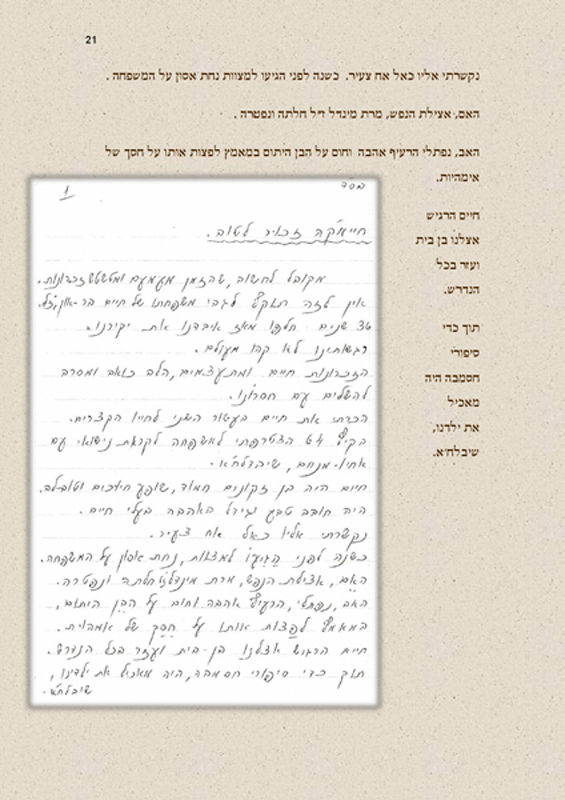 21
נקשרתי אליו כאל אח צעיר. כשנה לפני הגיעו למצוות נחת אסון על המשפחה.
האם, אצילת הנפש, מרת מינדל ז״ל חלתה ונפטרה.
האב, נפתלי הרעיף אהבה וחום על הבן היתום במאמץ לפצות אותו על חסך של
אימהיות.
חיים הרגיש
אצלנו בן בית
ועזר בכל
הנדרש.
תוך כדי
סיפורי
חסמבה היה
מאכיל
את ילדנו,
שיבלח״א.
בס״ד
1
חיימק׳ה זכור לטוב.
מקובל לחשוב, שהזמן מעמעם ומטשטש זכרונות.
אין לזה תוקף לגבי משפחתו של חיים בר-און, ז״ל.
36 שנים חלפו מאז איבדנו את יקירנו.
רגשותינו לא קהו מעולם.
הזכרונות חיים ומתעצמים, הלב כואב ומסרב
להשלים עם חסרונו.
הכרתי את חיים בעשור השני לחייו הקצרים.
בקיץ 64 הצטרפתי למשפחה לקראת נישואי עם
אחיו-מנחם, שיהדלח״א.
חיים היה בן זקונים חמוד, שופע חיוכים וטוב-לב.
היה חובב טבע וגידל באהבה בעלי חיים.
נקשרתי אליו כאל אח צעיר.
כשנה לפני הגיעו למצוות, נחת אסון על המשפחה.
האם, אצילת הנפש, מרת מינדל ז״ל חלתה ונפטרה.
האב, נפתלי, הרעיף אהבה וחום על הבן היתום,
במאמץ לפצות אותו על חסך של אמהות.
חיים הרגיש אצלנו בן-בית ועזר בכל הנדרש.
תוך כדי סיפורי חסמבה, היה מאכיל את ילדינו,
שיבלח״א.